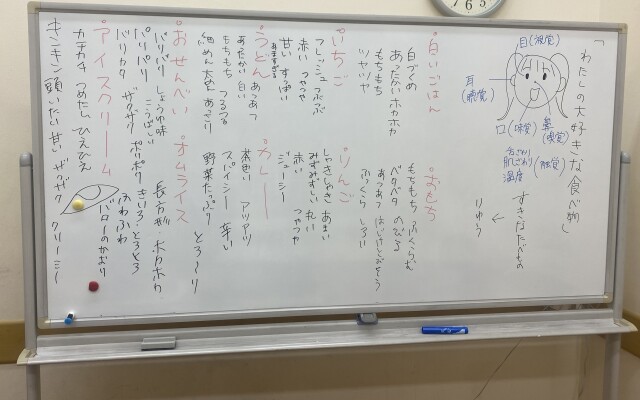 「わたしの大好きな食べ物」
目(視覚)
耳(聴覚)
鼻(嗅覚)
口(味覚)
舌ざわり
肌ざわり
温度
(触覚)
すきなたべもの
↓
りゆう
白いごはん
白つめ
あったかいホカホカ
もちもち
ツヤツヤ
おもち
もちもち ふくらんだ
ベタベタ のびる
あつあつ
ふっくら しろい
いちご
フレッシュ つぶつぶ
赤い つやつや
甘い すっぱい
りんご
しゃきしゃき あまい
みずみずしい 丸い
赤い つやつや
ジューシー
うどん
あつあつ
あったかい 白い
もちもち つるつる
細めん 太めん あっさり
カレー
茶色い アツアツ
スパイシー 辛い
野菜たっぷり とろ〜り
おせんべい
パリパリ しょうゆ味
パリパリ こうばしい
バリカタ ザクザク ポリポリ
オムライス
長方形・ホカホカ
きいろ・とろとろ
ふわふわ
バローのかおり
アイスクリーム
カチカチ つめたい ひえひえ
キンキン 頭いたい 甘い ザクザク クリーミー